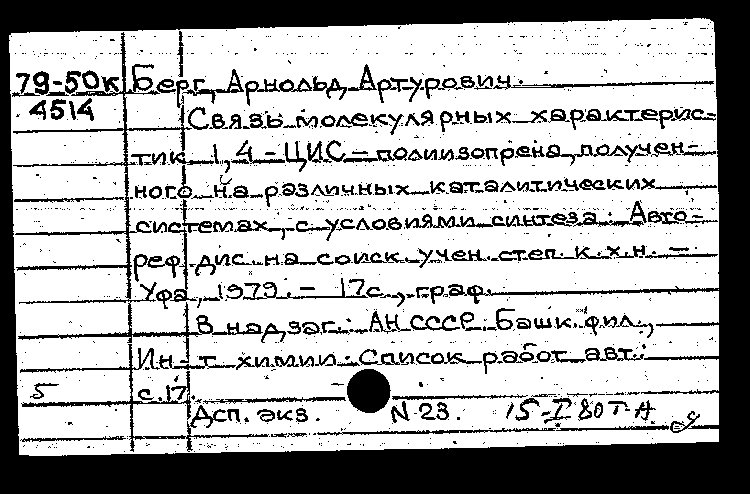 79-50к Берг, Арнольд Артурович.
4514 Связь молекулярных характерис-
тик 1,4-ЦИС-полиизопрена, получен-
ного на различных каталитических
системах, с условиями синтеза: Авто-
реф. дис. на соиск. учен. степ. к.х.н. –
Уфа, 1979. – 17с., граф.
В надзаг.: АН СССР. Башк. фил.,
Ин-т химии. Список работ авт.:
5 с.17.
Дсп. экз. N 23. 15-I 80 Т-А